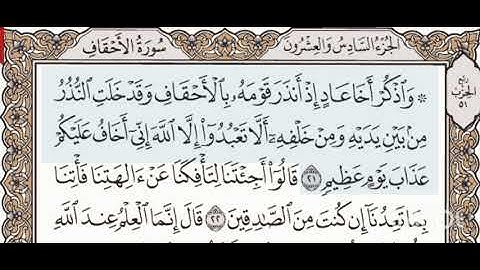 الجُزْءُ السَّادِسُ وَالعِشْرُونَ
سُورَةُ الأَحْقَافِ
رُبع
الحِزْب
٥١
۞ وَٱذْكُرْ أَخَا عَادٍ إِذْ أَنذَرَ قَوْمَهُۥ بِٱلْأَحْقَافِ وَقَدْ خَلَتِ ٱلنُّذُرُ
مِنۢ بَيْنِ يَدَيْهِ وَمِنْ خَلْفِهِۦٓ أَلَّا تَعْبُدُوٓا۟ إِلَّا ٱللَّهَ إِنِّىٓ أَخَافُ عَلَيْكُمْ
عَذَابَ يَوْمٍ عَظِيمٍ ٢١ قَالُوٓا۟ أَجِئْتَنَا لِتَأْفِكَنَا عَنْ ءَالِهَتِنَا فَأْتِنَا
بِمَا تَعِدُنَآ إِن كُنتَ مِنَ ٱلصَّـٰدِقِينَ ٢٢ قَالَ إِنَّمَا ٱلْعِلْمُ عِندَ ٱللَّهِ